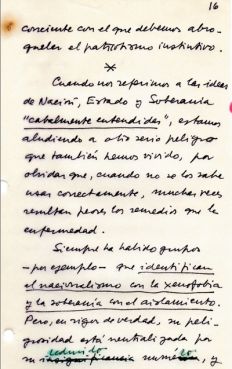 16
consciente con el que debemos abro-
quelar el patriotismo instintivo.
*
Cuando nos referimos a las ideas
de Nación, Estado y Soberanía
"cabalmente entendidas", estamos
aludiendo a otro serio peligro
que también hemos vivido, por
olvidar que, cuando no se los sabe
usar correctamente, muchas veces
resultan peores los remedios que la
enfermedad.
Siempre ha habido grupos
-por ejemplo- que identifican
el nacionalismo con la xenofobia
y la soberanía con el aislamiento.
Pero, en rigor de verdad, su peli-
grosidad está neutralizada por
su reducido número, y